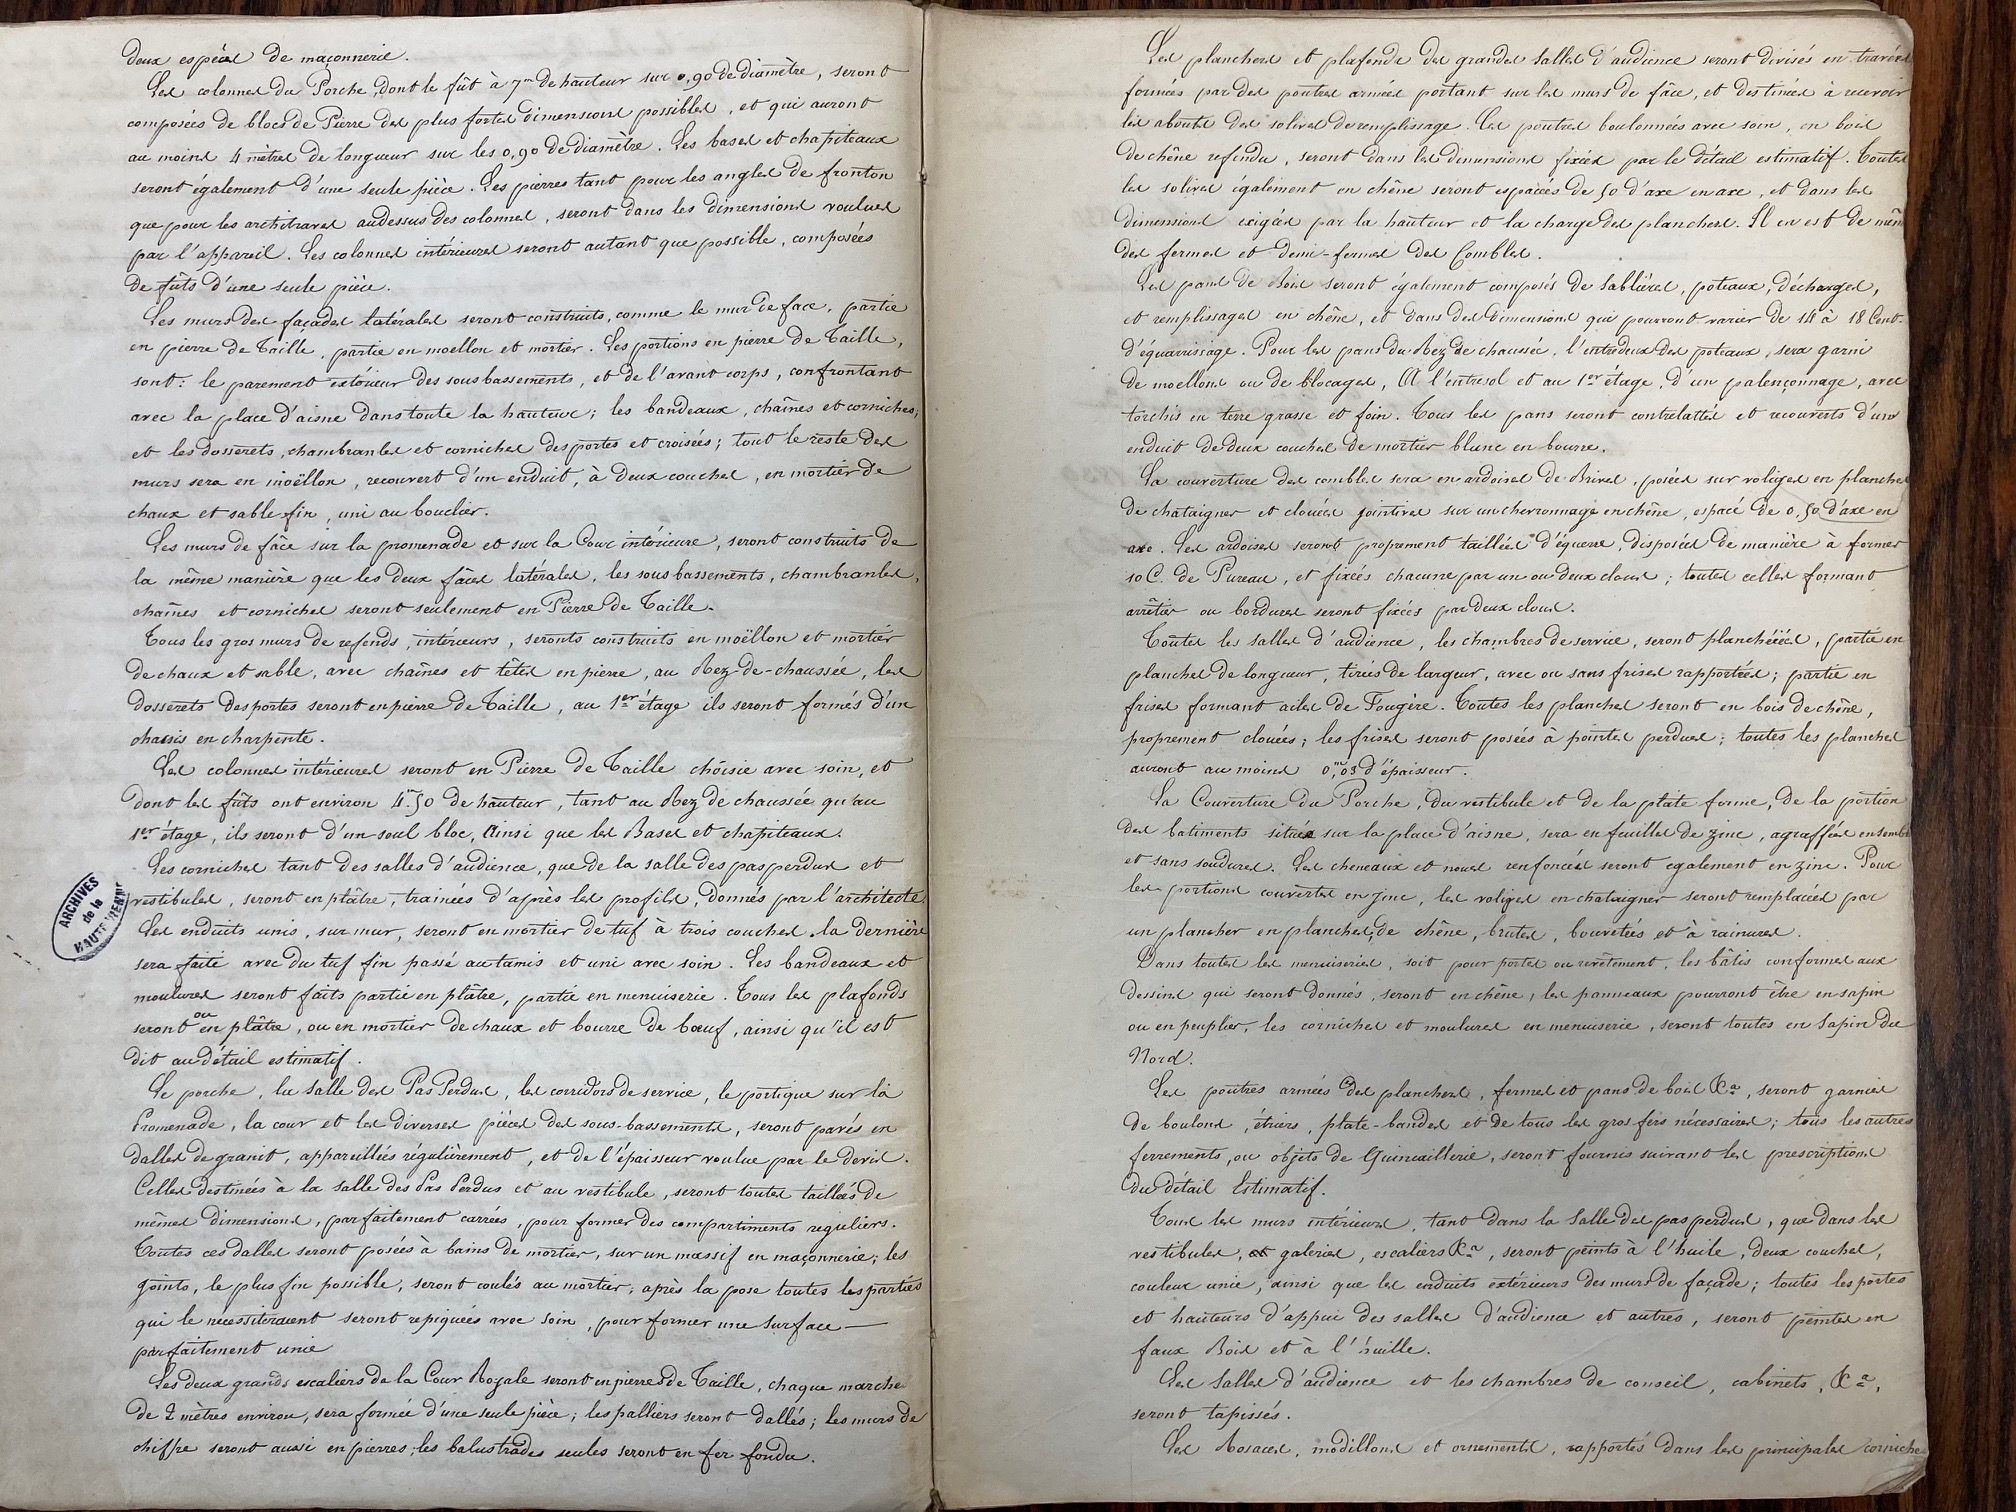 deux espèces de maçonnerie.
Les colonnes du Porche, dont le fût à 7m de hauteur sur 0,90 de diamètre, seront
composées de blocs de Pierre des plus fortes dimensions possibles, et qui auront
au moins 4 mètres de longueur sur les 0,90 de diamètre. Les bases et chapiteaux
seront également d'une seule pièce. Les pierres tant pour les angles de fronton
que pour les architraves audessus des colonnes, seront dans les dimensions voulues
par l'appareil. Les colonnes intérieures seront autant que possible, composées
de fûts d'une seule pièce.
Les murs des façades latérales seront construits, comme le mur de face, partie
en pierre de Taille, partie en moellon et mortier. Les portions en pierre de Taille,
sont: le parement extérieur des sous bassements, et de l'avant corps, confrontant
avec la place d'aisne dans toute la hauteur; les bandeaux, chaînes et corniches,
et les dosserets, chambranles et corniches des portes et croisées; tout le reste des
murs sera en moëllon, recouvert d'un enduit, à deux couches, en mortier de
chaux et sable fin, uni au bouclier.
Les murs de fâce sur la promenade et sur la Cour intérieure, seront construits de
la même manière que les deux fâces latérales, les sous bassements, chambranles,
chaînes et corniches seront seulement en Pierre de Taille.
Tous les gros murs de refends, intérieurs, seronts construits en moëllon et mortier
de chaux et sable, avec chaînes et têtes en pierre, au Rez-de-chaussée, les
dosserets des portes seront en pierre de Taille, au 1er étage ils seront formés d'un
chassis en charpente.
Les colonnes intérieures seront en Pierre de Taille choisie avec soin, et
dont les fûts ont environ 4m.50 de hauteur, tant au Rez de chaussée qu'au
1er étage, ils seront d'un seul bloc, Ainsi que les Bases et chapiteaux.
Les corniches tant des salles d'audience, que de la salle des pas perdus et
vestibules, seront en plâtre, trainées d'après les profils, donnés par l'architecte
Les enduits unis, sur mur, seront en mortier de tuf à trois couches la dernière
sera faite avec du tuf fin passé au tamis et uni avec soin. Les bandeaux et
moulures seront faits partie en plâtre, partie en menuiserie. Tous les plafonds
seront ou en plâtre, ou en mortier de chaux et bourre de bœuf, ainsi qu'il est
dit au détail estimatif.
Le porche, la Salle des Pas Perdus, les corridors de service, le portique sur la
Promenade, la cour et les diverses pièces des sous-bassements, seront pavés en
dalles de granit, appareillées régulièrement, et de l'épaisseur voulue par le devis.
Celles destinées à la Salle des Pas Perdus et au vestibule, seront toutes taillées de
mêmes dimensions, parfaitement carrées, pour former des compartiments reguliers.
Toutes ces dalles seront posées à bains de mortier, sur un massif en maçonnerie; les
joints, le plus fin possible, seront coulés au mortier; après la pose toutes les parties
qui le nécessiteraient seront repiquées avec soin, pour former une surface
parfaitement unie
Les deux grands escaliers de la Cour Royale seront en pierres de Taille, chaque marche
de 2 mètres environ, sera formée d'une seule pièce; les palliers seront dallés; les murs de
chiffre seront aussi en pierres; les balustrades seules seront en fer fondu.
ARCHIVES
de la
HAUTE VIENNE
Les planchers et plafonds des grandes salles d'audience seront divisés en travées
formées par des poutres armées portant sur les murs de fâce, et destinées à recevoir
les abouts des solives de remplissage. Les poutres boulonnées avec soin, en bois
de chêne refendu, seront dans les dimensions fixées par le Détail estimatif. Toutes
les solives également en chêne seront espacées de 50 d'axe en axe, et dans les
dimensions exigées par la hauteur et la charge des planchers. Il en est de même
des fermes et demi-fermes des Combles.
Les pans de Bois seront également composés de Sablières, poteaux, décharges,
et remplissages en chêne, et dans des dimensions qui pourront varier de 14 à 18 Cent.
d'équarrissage. Pour les pans du Rez de chaussée, l'entredeux des poteaux, sera garni
de moellons ou de blocages, A l'entresol et au 1er étage, d'un palençonnage, avec
torchis en terre grasse et foin. Tous les pans seront contrelattés et recouverts d'un
enduit de deux couches de mortier blanc en bourre.
La couverture des combles sera en ardoises de Brives, posées sur voliges en planches
de chataigner et clouées jointives sur un chevronnage en chêne, espacé de 0,50 d'axe en
axe. Les ardoises seront proprement taillées d'équerre, disposées de manière à former
10 C. de Pureau, et fixées chacune par un ou deux clous; toutes celles formant
arrêtier ou bordures seront fixées par deux clous.
Toutes les salles d'audience, les chambres de service, seront planchéiées, partie en
planches de longueur, tirées de largeur, avec ou sans frises rapportées; partie en
frises formant ailes de Fougère. Toutes les planches seront en bois de chêne,
proprement clouées; les frises seront posées à pointes perdues; toutes les planches
auront au moins 0,m03 d'épaisseur.
La Couverture du Porche, du vestibule et de la plate forme, de la portion
des batiments située sur la place d'aisne, sera en feuilles de zinc, agraffées ensemble
et sans soudures. Les cheneaux et noues renfoncées seront egalement en zinc. Pour
les portions couvertes en zinc, les voliges en chataigner seront remplacées par
un plancher en planches de chêne, brutes, bouvetées et à rainures.
Dans toutes les menuiseries, soit pour portes ou revêtement, les bâtis conformes aux
dessins qui seront donnés, seront en chêne, les panneaux pourront être en sapin
ou en peuplier, les corniches et moulures en menuiserie, seront toutes en Sapin du
Nord.
Les poutres armées des planchers, fermes et pans de bois &a, seront garnies
de boulons, étriers, plate-bandes et de tous les gros fers nécessaires; tous les autres
ferrements, ou objets de Quincaillerie, seront fournis suivant les prescriptions
du détail Estimatif.
Tous les murs intérieurs, tant dans la Salle des pas perdus, que dans les
vestibules, galeries, escaliers &a, seront peints à l'huile, deux couches,
couleur unie, ainsi que les enduits extérieurs des murs de façade; toutes les portes
et hauteurs d'appui des salles d'audience et autres, seront peintes en
faux Bois et à l'huille.
Les Salles d'audience et les chambres de conseil, cabinets, &a,
seront tapissés.
Les Rosaces, modillons et ornements, rapportés dans les principales corniches